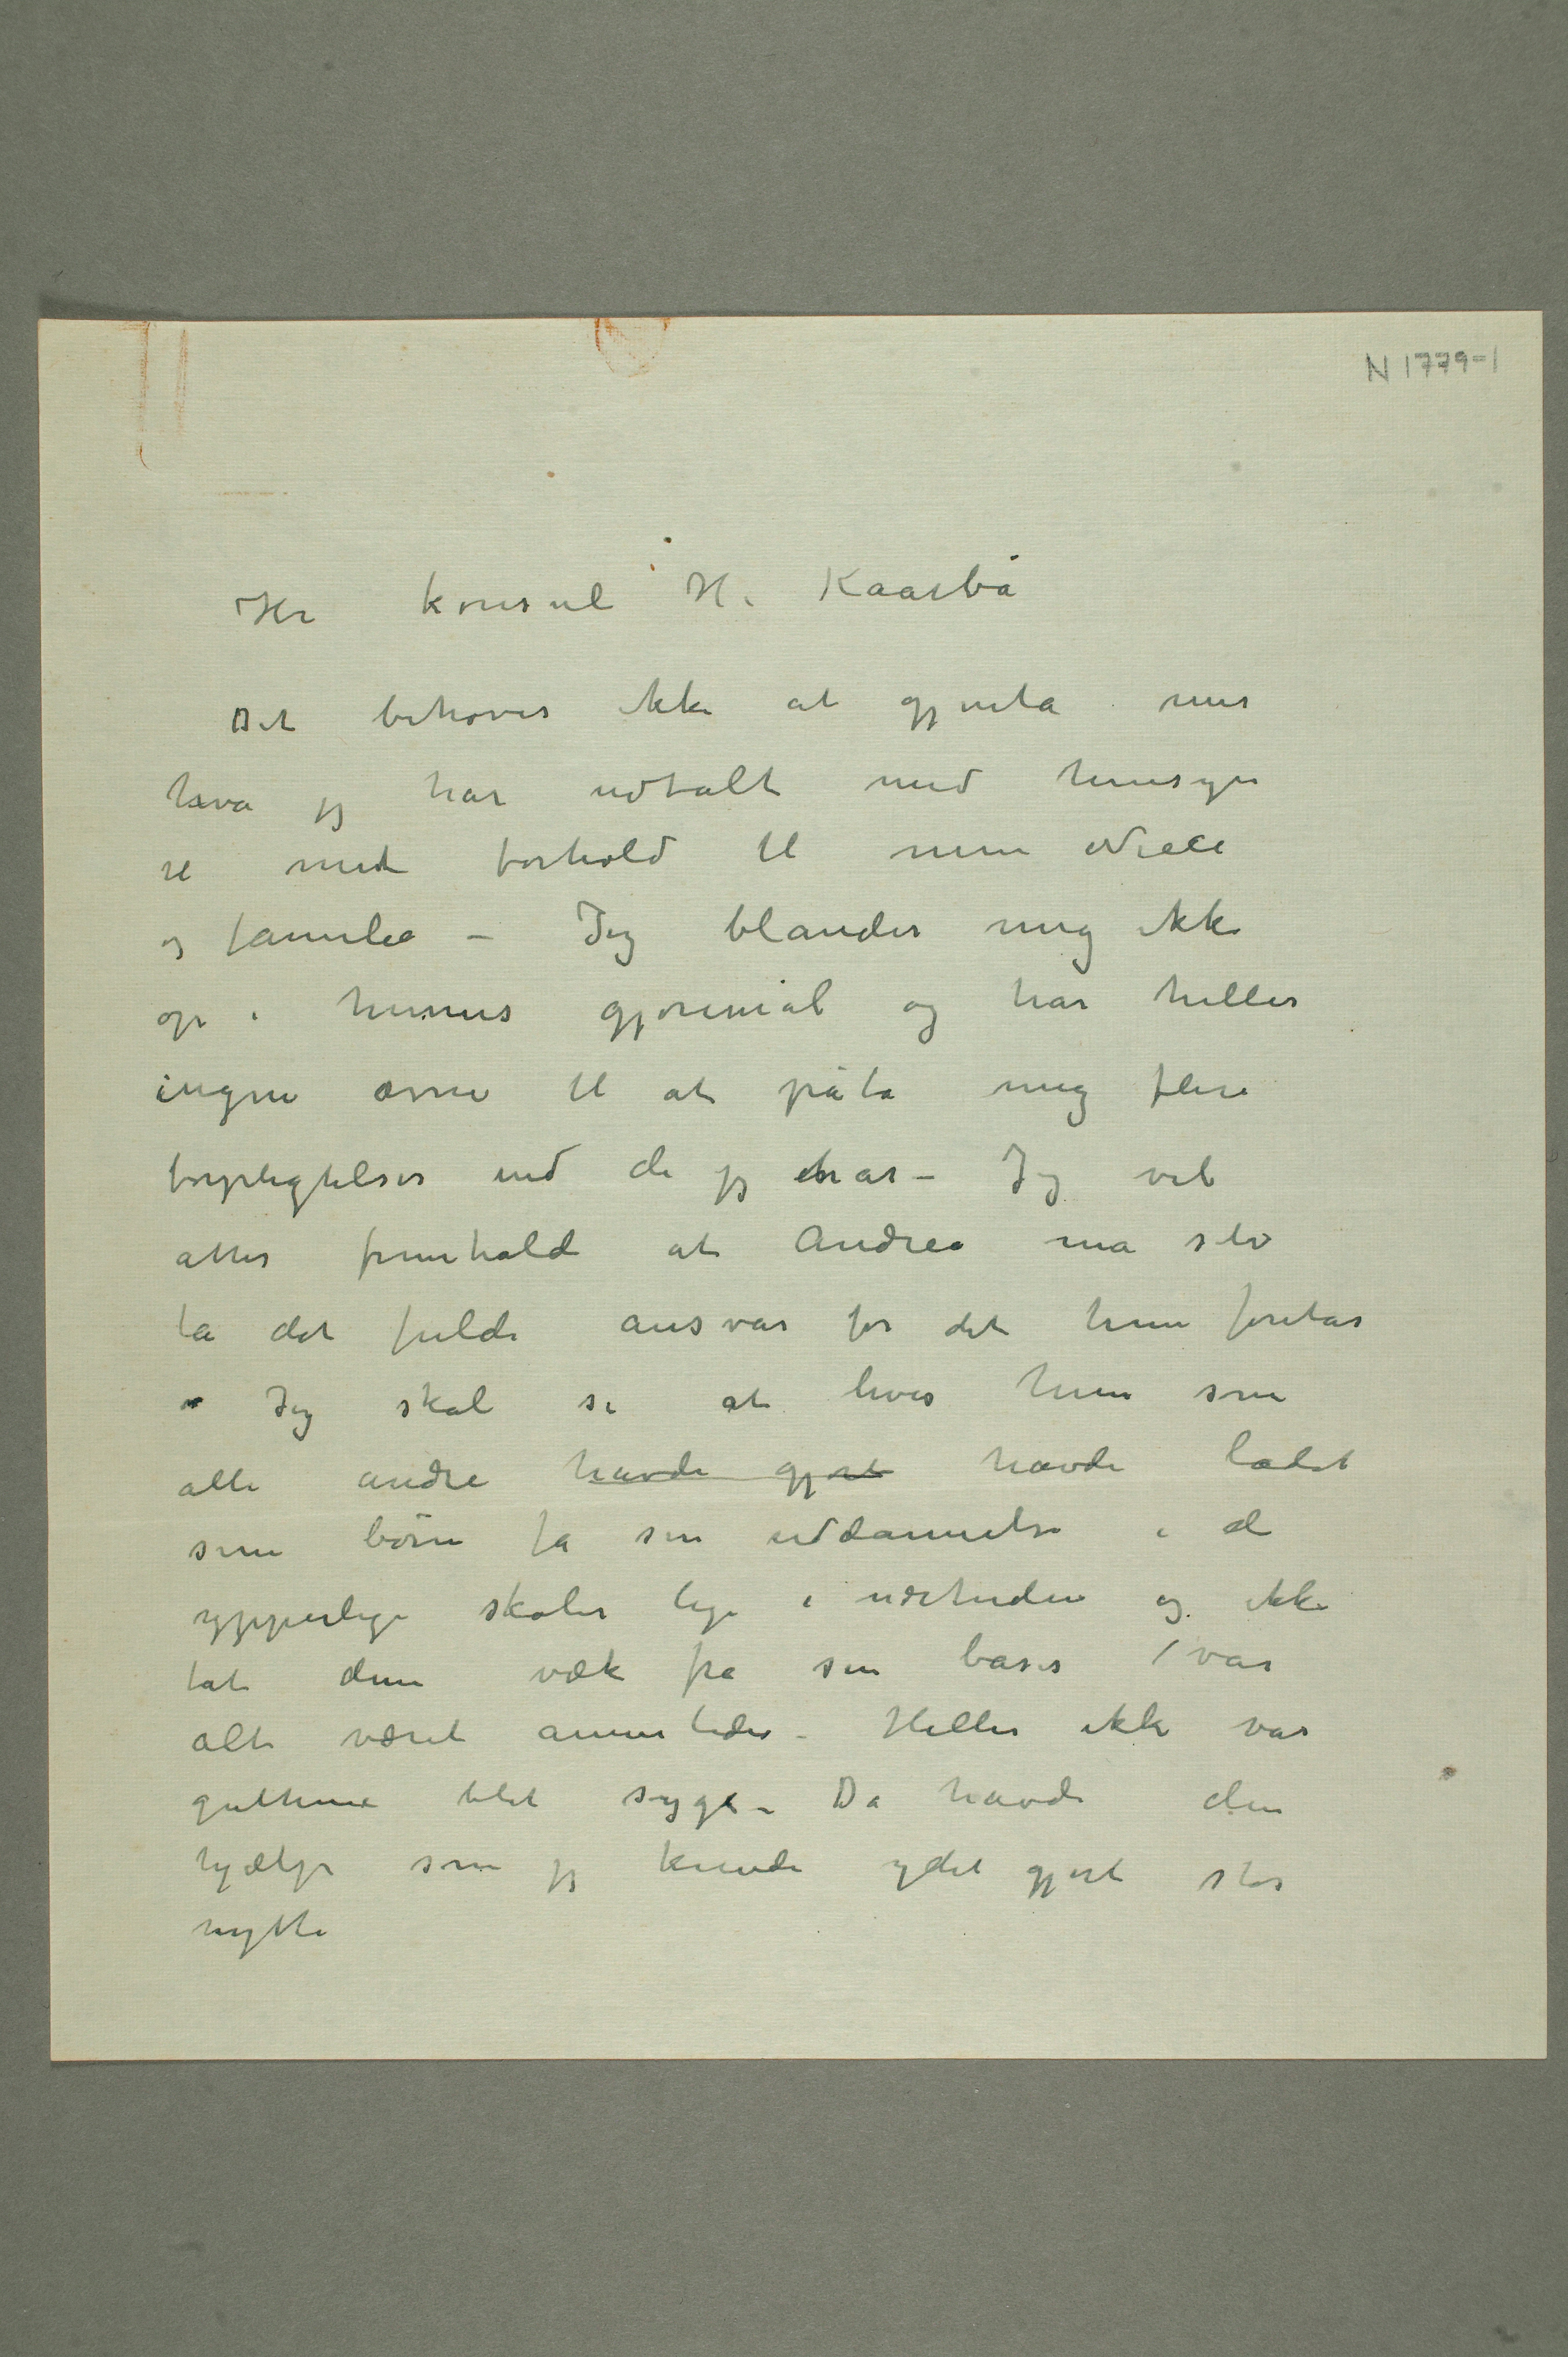 N 1779-1
Hr konsul H. Kaarbå
Det behøves ikke at gjenta mer
hva jeg har udtalt med hensyn
til mit forhold til min Niece
og familie – Jeg blander mig ikke
op i hennes gjøremål og har heller
ingen ævne til at påta mig flere
forpligtelser end de jeg har – Jeg vil
atter fremholde at Andrea må selv
ta det fulde ansvar for det hun foretar
– Jeg skal si at hvis hun som
alle andre havde gjort havde ladet
sine børn få sin uddannelse i de
ypperlige skoler lige i nærheden og ikke
tat dem væk fra sin basis / var
alt været annerledes – Heller ikke var
guttene blet syge – Da havde den
hjælp som jeg kunde ydet gjort stor
nytte